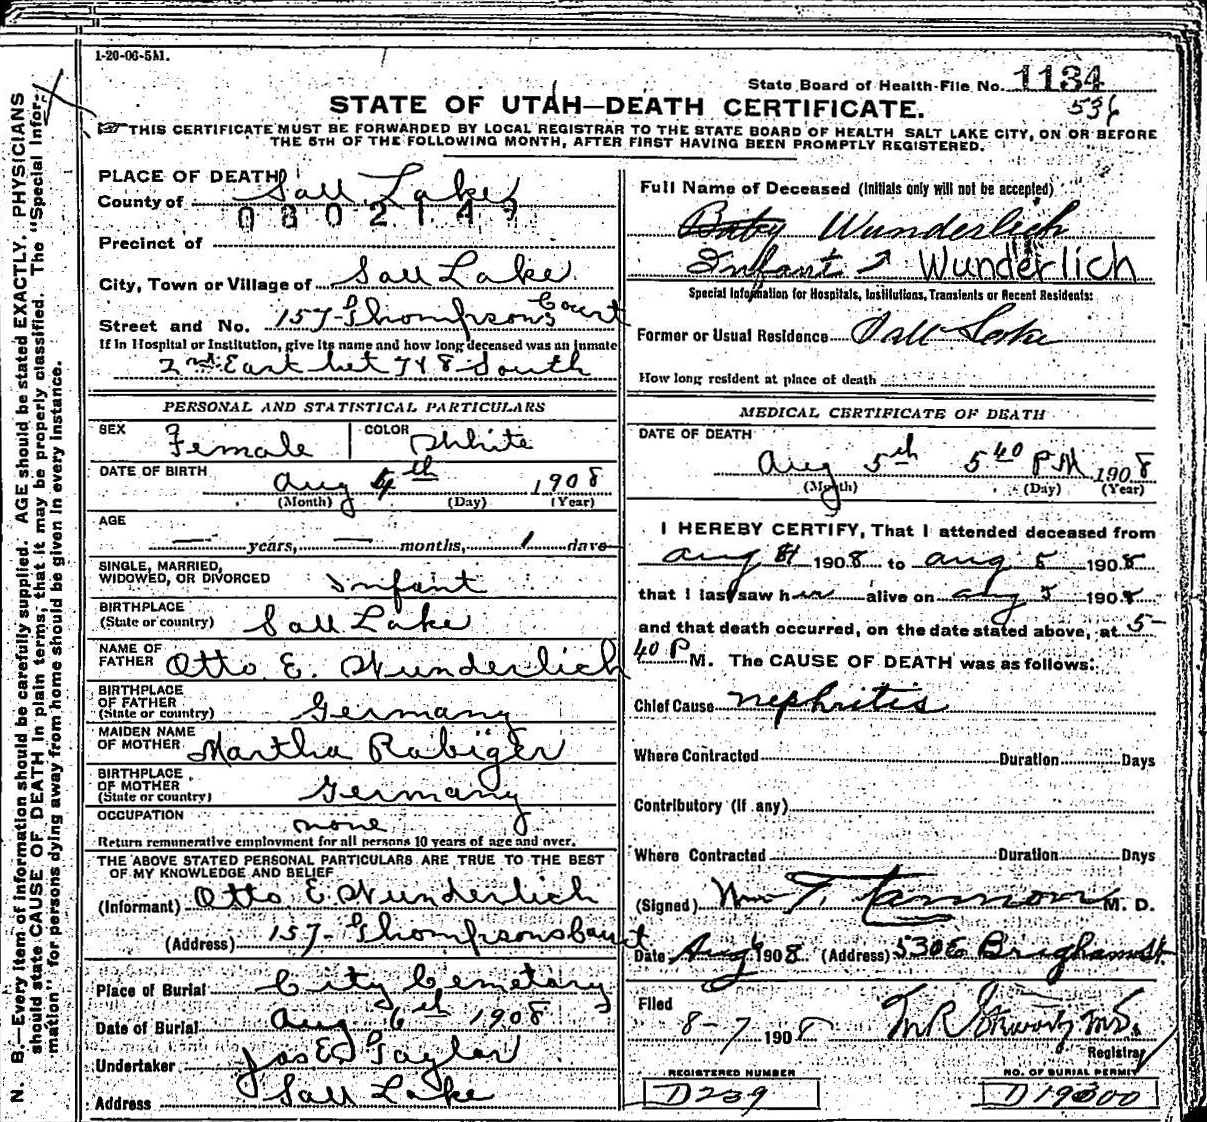 1-20-06-5M.
State Board of Health-File No. 1134
536
STATE OF UTAH—DEATH CERTIFICATE.
THIS CERTIFICATE MUST BE FORWARDED BY LOCAL REGISTRAR TO THE STATE BOARD OF HEALTH SALT LAKE CITY, ON OR BEFORE
THE 5TH OF THE FOLLOWING MONTH, AFTER FIRST HAVING BEEN PROMPTLY REGISTERED.
N. B.—Every item of information should be carefully supplied. AGE should be stated EXACTLY. PHYSICIANS
should state CAUSE OF DEATH in plain terms, that it may be properly classified. The "Special Infor-
mation" for persons dying away from home should be given in every instance.
PLACE OF DEATH
County of Salt Lake
0802147
Precinct of
City, Town or Village of Salt Lake
Street and No. 157 Thompsons Court
If in Hospital or Institution, give its name and how long deceased was an inmate
2nd East bet 7 & 8 South
PERSONAL AND STATISTICAL PARTICULARS
SEX Female COLOR White
DATE OF BIRTH
Aug 4th 1908
(Month) (Day) (Year)
AGE
— years, — months, 1 days
SINGLE, MARRIED,
WIDOWED, OR DIVORCED Infant
BIRTHPLACE
(State or country) Salt Lake
NAME OF
FATHER Otto E. Wunderlich
BIRTHPLACE
OF FATHER
(State or country) Germany
MAIDEN NAME
OF MOTHER Martha Rabiger
BIRTHPLACE
OF MOTHER
(State or country) Germany
OCCUPATION
none
Return remunerative employment for all persons 10 years of age and over.
THE ABOVE STATED PERSONAL PARTICULARS ARE TRUE TO THE BEST
OF MY KNOWLEDGE AND BELIEF
(Informant) Otto E Wunderlich
(Address) 157 Thompsons Court
Place of Burial City Cemetary
Date of Burial Aug 6th 1908
Undertaker Jos E Taylor
Address Salt Lake
Full Name of Deceased (Initials only will not be accepted)
Baby Wunderlich
Infant Wunderlich
Special Information for Hospitals, Institutions, Transients or Recent Residents:
Former or Usual Residence Salt Lake
How long resident at place of death
MEDICAL CERTIFICATE OF DEATH
DATE OF DEATH
Aug 5th 5 40 PM 1908
(Month) (Day) (Year)
I HEREBY CERTIFY, That I attended deceased from
Aug 1908 to Aug 5 1908
that I last saw her alive on Aug 5 1908
and that death occurred, on the date stated above, at 5
40 P M. The CAUSE OF DEATH was as follows:
Chief Cause nephritis
Where Contracted Duration Days
Contributory (if any)
Where Contracted Duration Days
(Signed) Wm T. Cannon M. D.
Date Aug 1908 (Address) 530 E Brigham St.
Filed
8-7 1908
Registrar
REGISTERED NUMBER
D239
NO. OF BURIAL PERMIT
D19300